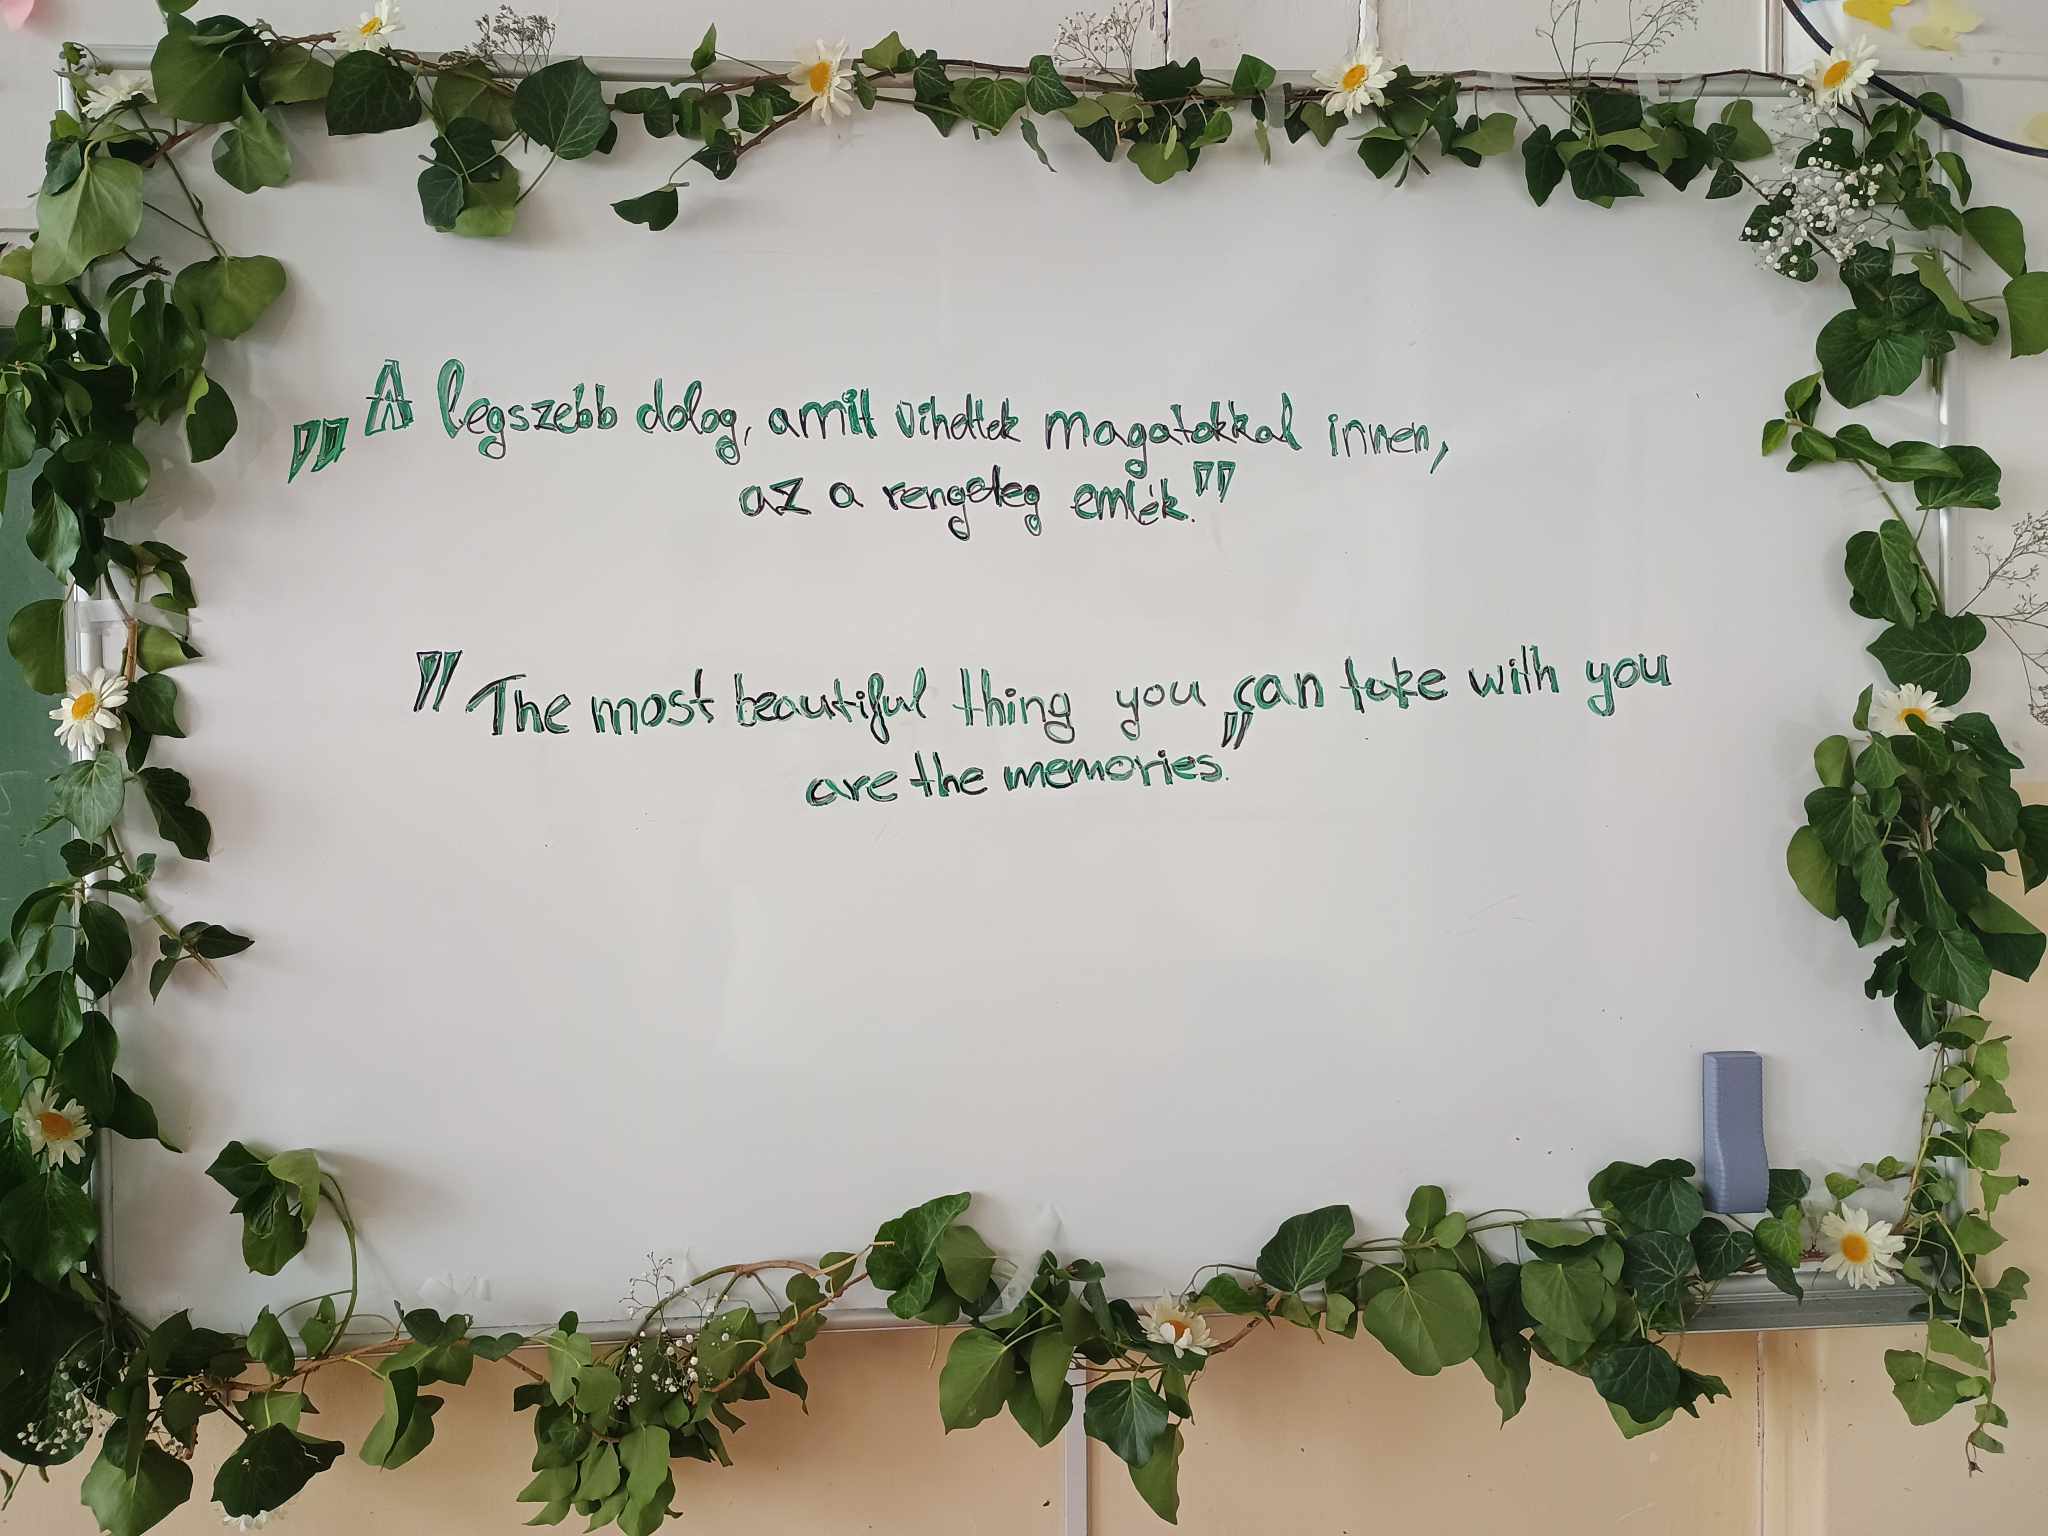 "A legszebb dolog, amit vihettek magatokkal innen,
az a rengeteg emlék."
"The most beautiful thing you can take with you
are the memories."